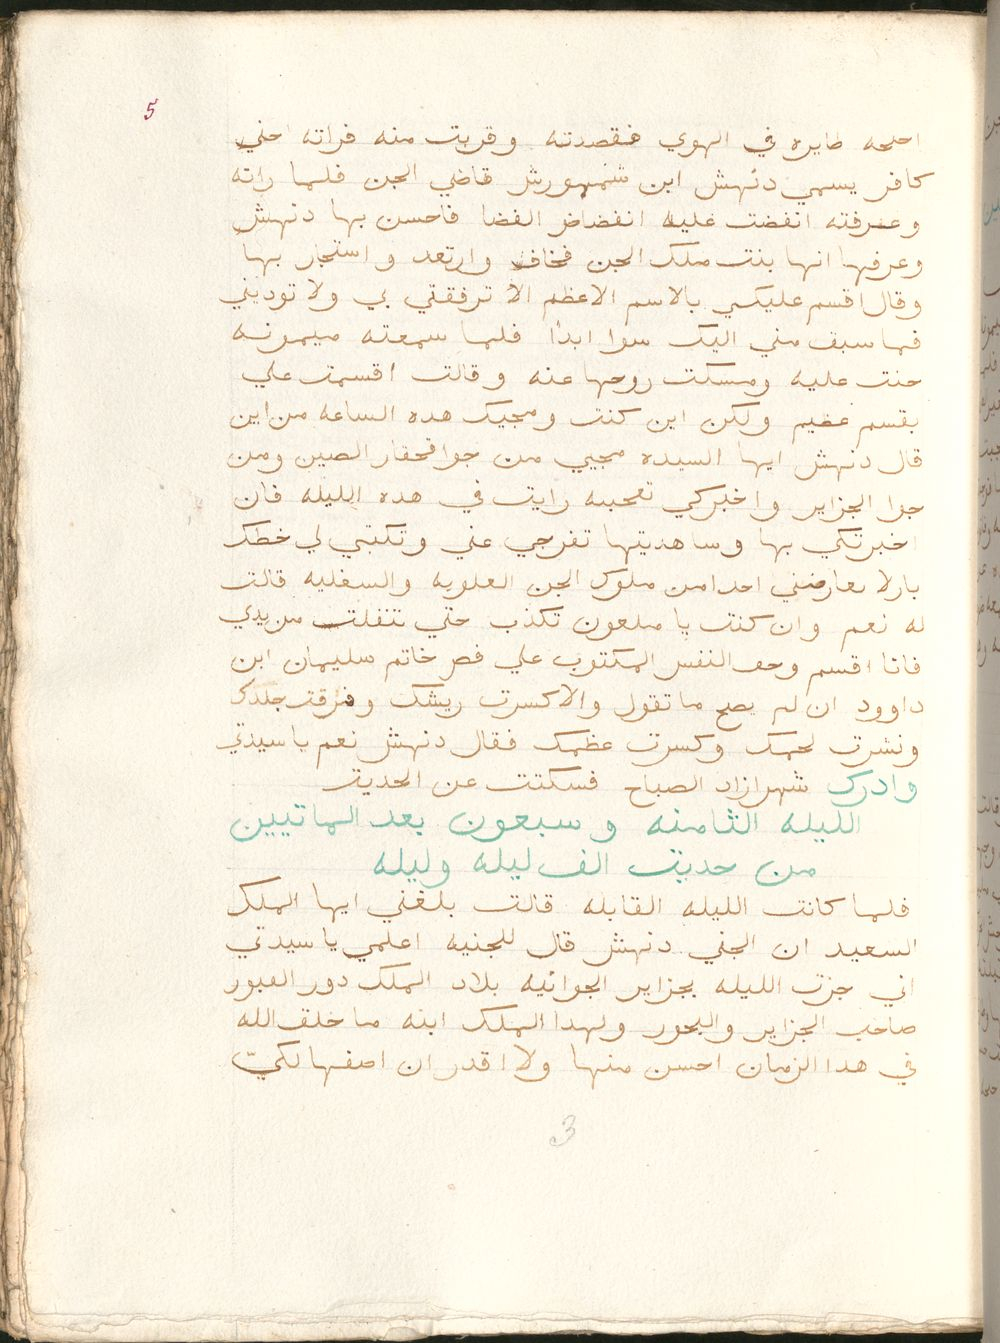 5
اجنحه طايره في الهوي فقصدته وقربت منه فراته جني
كافر يسمي دنهش ابن شمهورش قاضي الجن فلما راته
وعرفته انقضت عليه انقضاض القضا فاحسن بها دنهش
وعرفها انها بنت ملك الجن فخاف وارتعد واستجار بها
وقال اقسم عليكي بالاسم الاعظم الا ترفقتي بي ولا توديني
فما سبق مني اليك سوا ابدا فلما سمعته ميمونه
حنت عليه ومسكت روحها عنه وقالت اقسمت علي
بقسم عضيم ولكن اين كنت ومجيك هده الساعه من اين
قال دنهش ايها السيده مجيي من جوا قحقار الصين ومن
جوا الجزاير واخبركي تعجبه رايت في هده الليله فان
اخبرتكي بها وساهدتيها تفرجي عني وتكتبي لي خطك
بارلا يعارضني احدا من ملوك الجن العلويه والسفليه قالت
له نعم وان كنت يا ملعون تكذب حتي تنفلت من يدي
فانا اقسم وحق النفس المكتوب علي فص خاتم سليمان ابن
داوود ان لم يصح ما تقول والا كسرت ريشك ومزقت جلدك
ونشرت لحمك وكسرت عظمك فقال دنهش نعم يا سيدتي
وادرك شهرازاد الصباح فسكتت عن الحديت
الليله الثامنه وسبعون بعد الماتيين
من حديت الف ليله وليله
فلما كانت الليله القابله قالت بلغني ايها الملك
السعيد ان الجني دنهش قال للجنيه اعلمي يا سيدتي
اني جزت الليله بجزاير الجوانيه بلاد الملك دور الغبور
صاحب الجزاير والبحور ولهدا الملك ابنه ما خلق الله
في هدا الزمان احسن منها ولا اقدر ان اصفها لكي
3